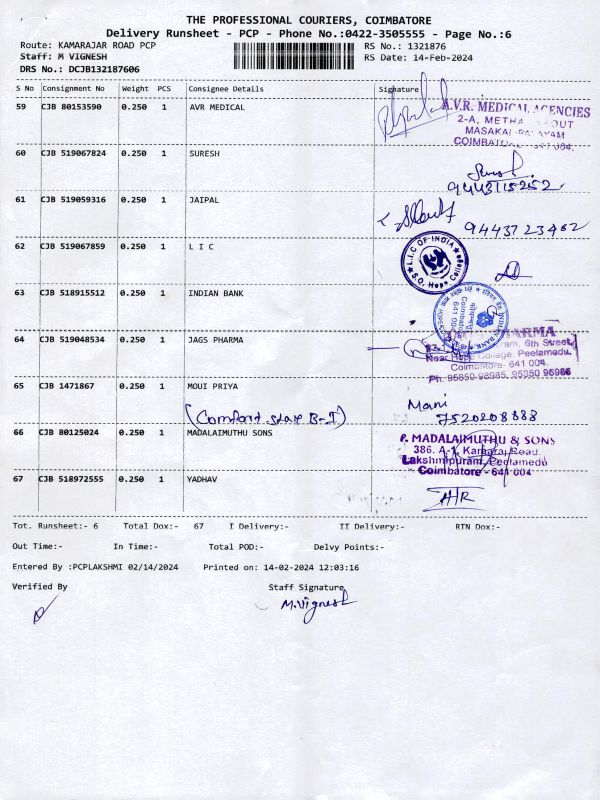 THE PROFESSIONAL COURIERS, COIMBATORE
Delivery Runsheet - PCP - Phone No.:0422-3505555 - Page No.:6
Route: KAMARAJAR ROAD PCP RS No.: 1321876
Staff: M VIGNESH RS Date: 14-Feb-2024
DRS No.: DCJB132187606
S No Consignment No Weight PCS Consignee Details Signature
59 CJB 80153590 0.250 1 AVR MEDICAL
A.V.R. MEDICAL AGENCIES
2-A, METHA
MASAKA
COIMBATORE 641 004.
60 CJB 519067824 0.250 1 SURESH
9443115252
61 CJB 519059316 0.250 1 JAIPAL
9443723462
62 CJB 519067859 0.250 1 L I C
L.I.C OF INDIA
S.O. Hope College
63 CJB 518915512 0.250 1 INDIAN BANK
INDIAN BANK
Coimbatore
641 004
64 CJB 519048534 0.250 1 JAGS PHARMA
PHARMA
6th Street,
Near Hope College, Peelamedu,
Coimbatore- 641 004.
Ph: 95650 98985, 95350 96986
65 CJB 1471867 0.250 1 MOUI PRIYA
Mani
(Comfort stay B-I) 7520208888
66 CJB 80125024 0.250 1 MADALAIMUTHU SONS
P. MADALAIMUTHU & SONS
386. A-1, Kamaraj Road
Lakshmipuram, Peelamedu
Coimbatore - 641 004
67 CJB 518972555 0.250 1 YADHAV
Tot. Runsheet:- 6 Total Dox:- 67 I Delivery:- II Delivery:- RTN Dox:-
Out Time:- In Time:- Total POD:- Delvy Points:-
Entered By :PCPLAKSHMI 02/14/2024 Printed on: 14-02-2024 12:03:16
Verified By Staff Signature
M.Vignesh